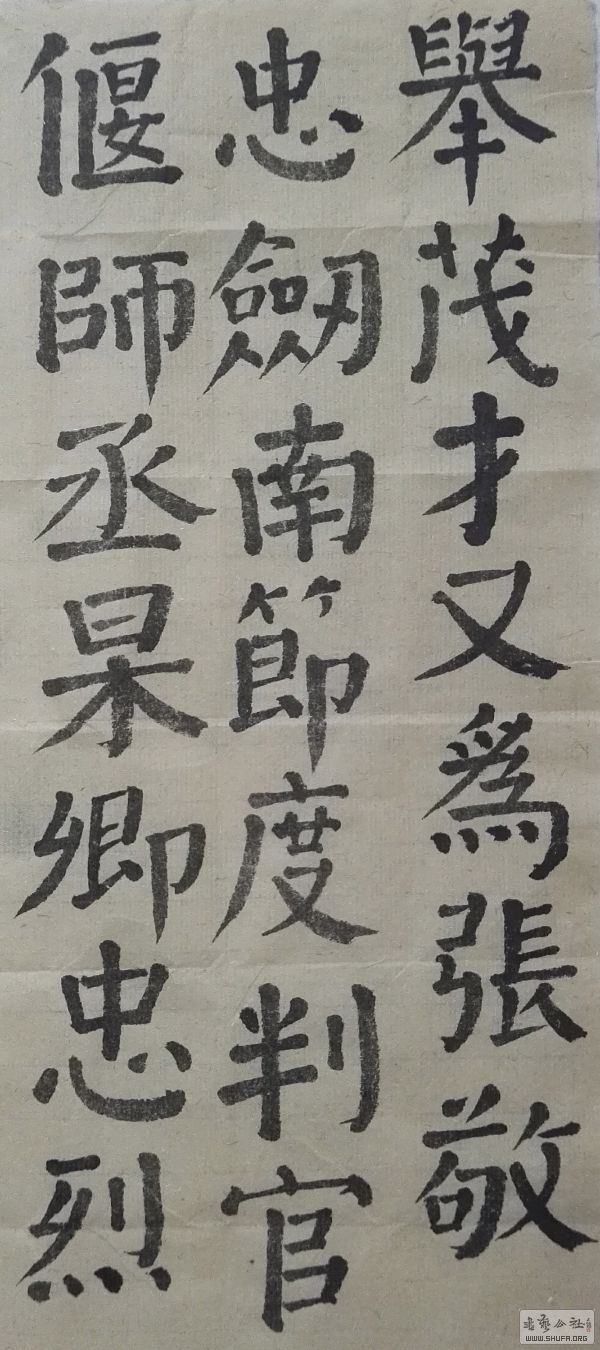 舉茂才又為張敬
忠劒南節度判官
偃師丞杲卿忠烈
WWW.SHUFA.ORG